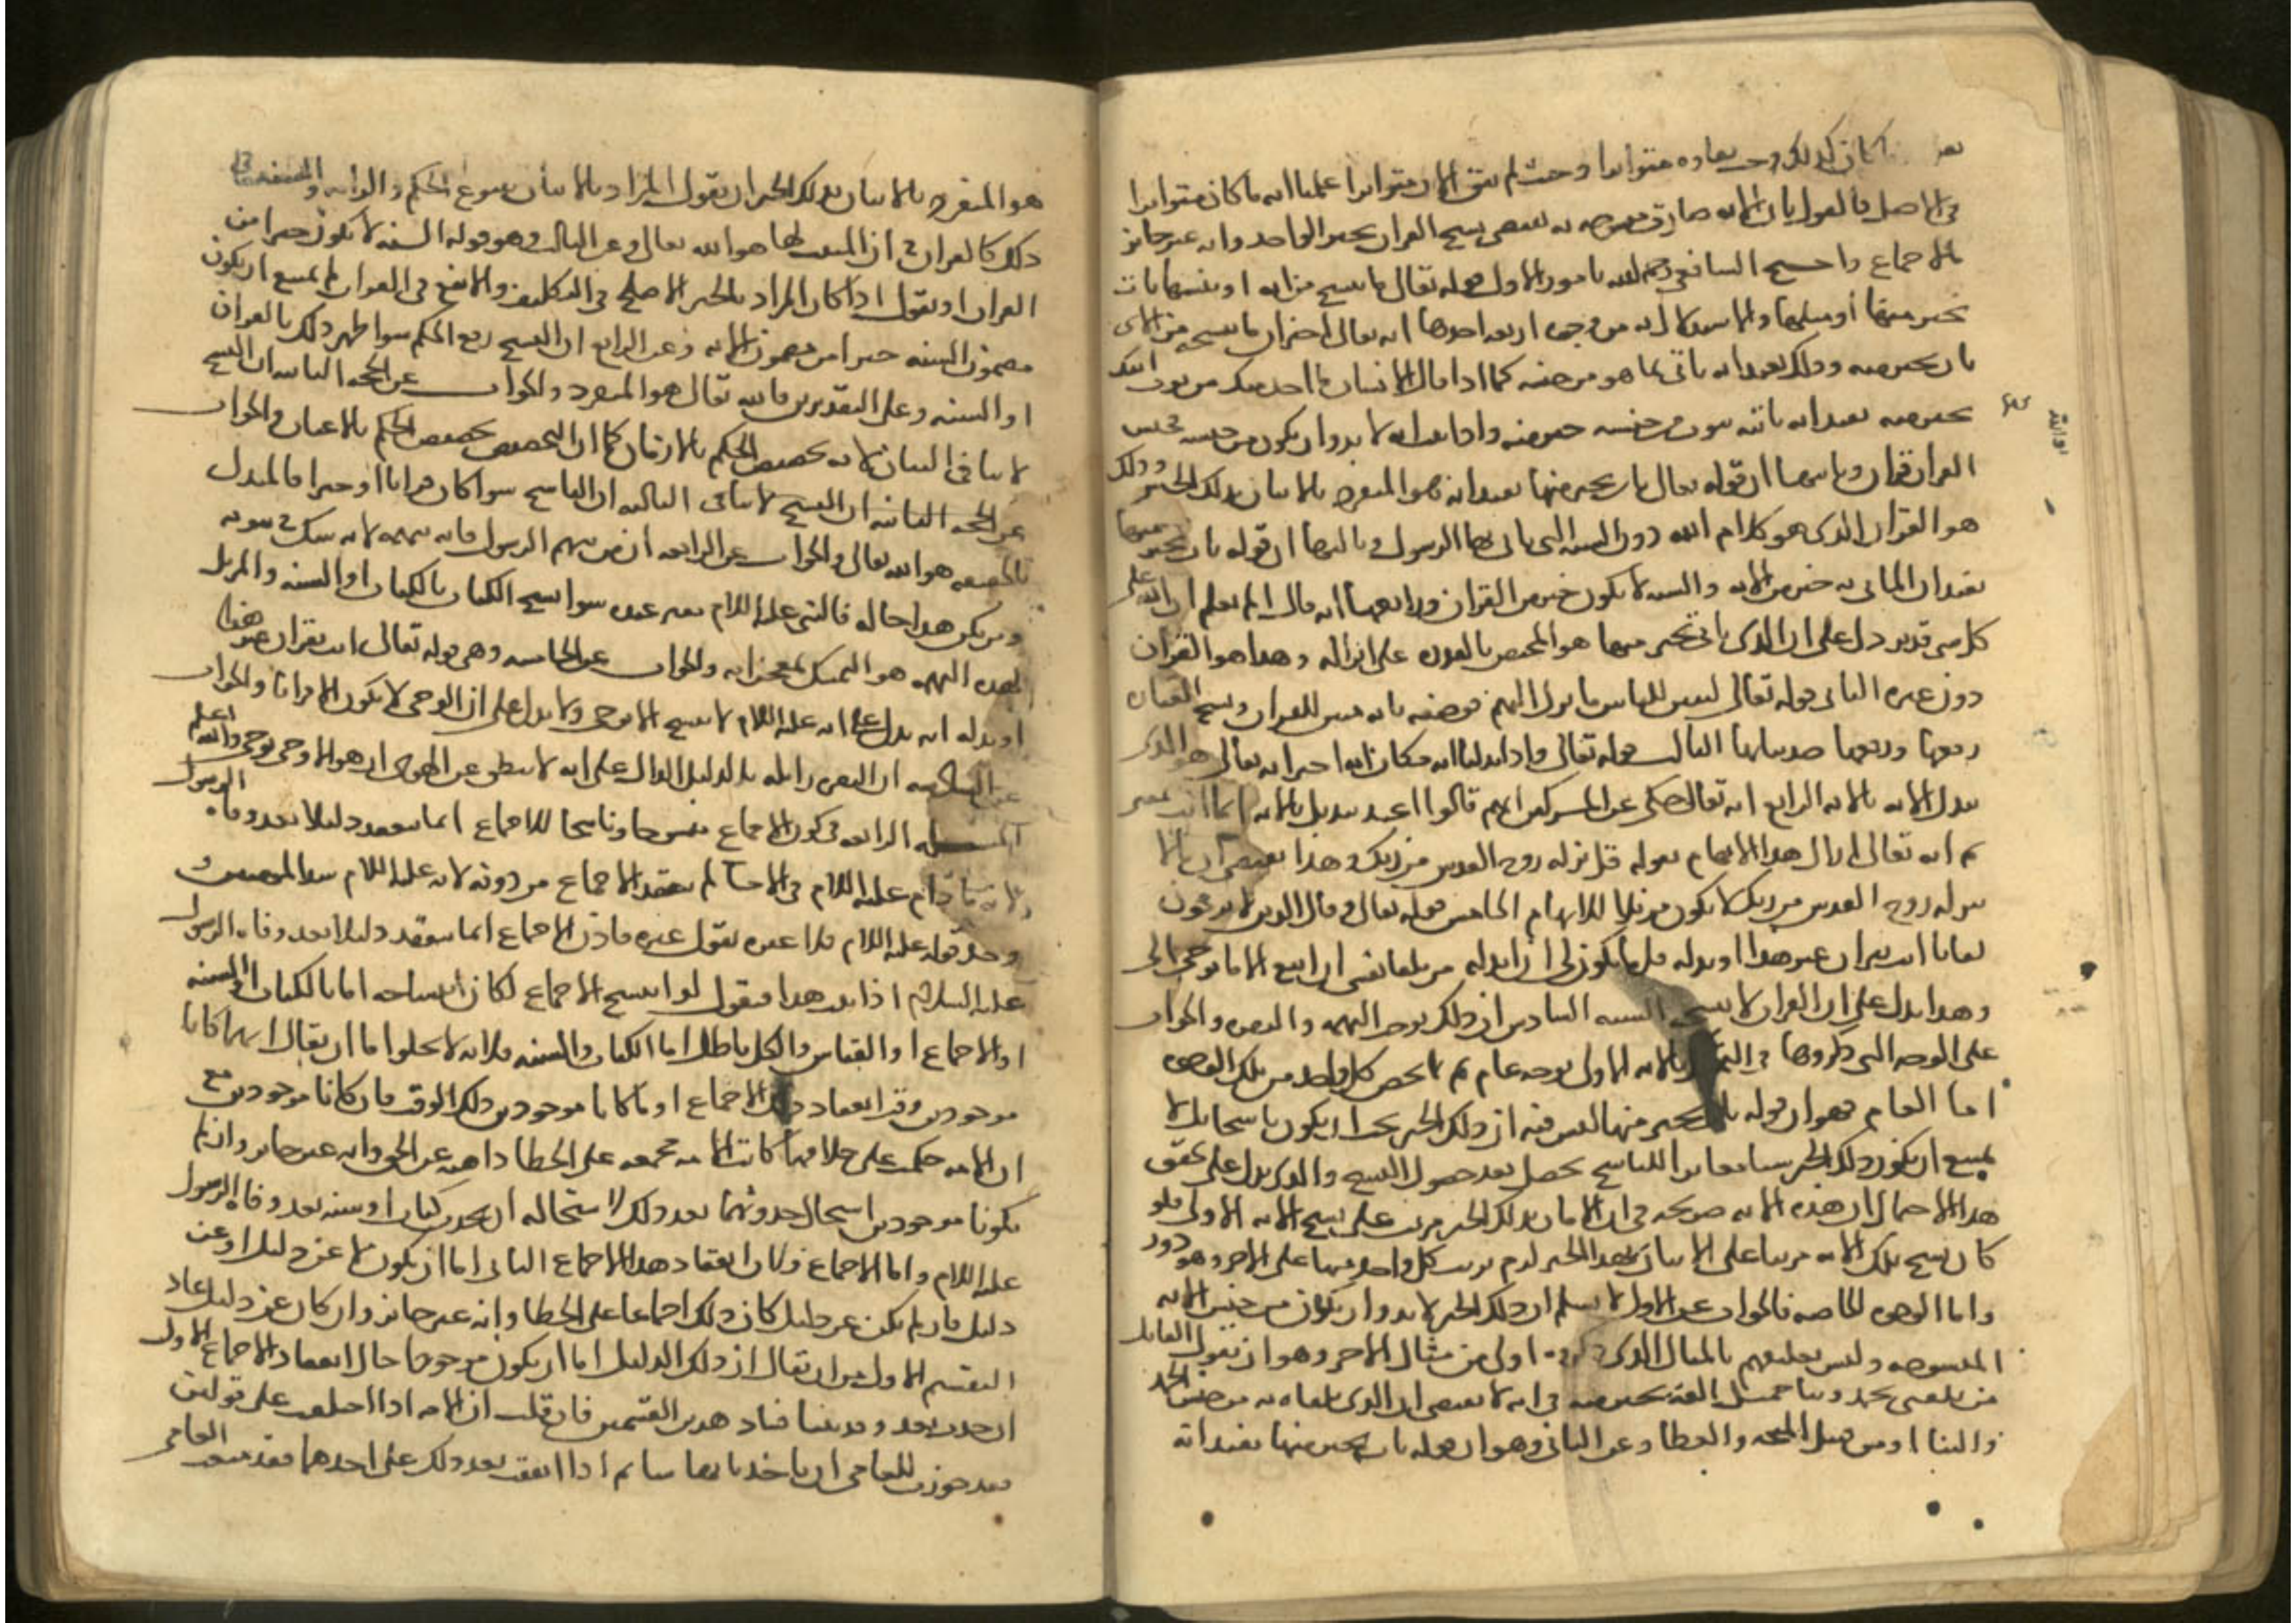 كان كذلك وجب بقاوه متواترا وحيث لم يبق الان متواترا علمنا انه ما كان متواترا
في الاصل فالقول بان الاية صارت منسوخه به يقتضي نسخ القران بخبر الواحد وانه غير جايز
بالاجماع واحتج الشافعي رحمه الله بامور الاول قوله تعالى ما ننسخ من اية او ننسها نات
بخير منها او مثلها والاستدلال به من وجوه اربعة احدها انه تعالى اخبر ان ما ننسخه من الاي
نات بخير منه وذلك يفيد انه ياتي بما هو من جنسه كما اذا قال الانسان ما اخذ منك من ثوب اتيك
بخير منه يفيد انه ياتيه بثوب من جنسه خير منه واذا ثبت انه لا بد وان يكون من جنسه فجنس
القران قران وثانيها ان قوله تعالى نات بخير منها يفيد انه هو المتفرد بالاتيان بذلك الخير وذلك
هو القران الذي هو كلام الله دون السنه التي ياتي بها الرسول وثالثها ان قوله نات بخير منها
يفيد ان الماتي به خير من الاية والسنه لا تكون خيرا من القران ورابعها انه قال الم تعلم ان الله على
كل شي قدير دل على ان الذي ياتي بخير منها هو المختص بالقدره على انزاله وهذا هو القران
دون غيره الثاني قوله تعالى لتبين للناس ما نزل اليهم فوصفه بانه مبين للقران ونسخ العباده
رفعها ورفعها ضد بيانها الثالث قوله تعالى واذا بدلنا اية مكان اية اخبر انه تعالى هو الذي
يبدل الاية بالاية الرابع انه تعالى حكى عن المشركين انهم قالوا عند تبديل الاية انما انت مفتر
ثم انه تعالى ازال هذا الايهام بقوله قل نزله روح القدس من ربك وهذا يقتضي ان ما لا
ينزله روح القدس من ربك لا يكون مزيلا للايهام الخامس قوله تعالى وقال الذين لا يرجون
لقانا ايت بقران غير هذا او بدله قل ما يكون لي ان ابدله من تلقا نفسي ان اتبع الا ما يوحى الي
وهذا يدل على ان القران لا ينسخ بالسنه السادس ان ذلك يوجب التهمه والنفره والجواب
على الوجوه التي ذكروها في التمسك بالاية الاولى بوجه عام ثم نخص كل واحد من تلك الوجوه
اما العام فهو ان قوله نات بخير منها ليس فيه ان ذلك الخير يجب ان يكون ناسخا بل لا
يمتنع ان يكون ذلك الخير شيا مغايرا للناسخ يحصل بعد حصول النسخ والذي يدل على تحقق
هذا الاحتمال ان هذه الاية صريحه في ان الاتيان بذلك الخير مرتب على نسخ الاية الاولى فلو
كان نسخ تلك الاية مرتبا على الاتيان بهذا الخير لزم ترتب كل واحد منهما على الاخر وهو دور
واما الوجوه الخاصه فالجواب عن الاول لا نسلم ان ذلك الخير لا بد وان يكون من جنس الاية
المنسوخه وليس تعلقهم بالمثال الذي ذكروه اولى من مثال الاخر وهو ان يقول القايل
من يلقني بحمد وثنا جميل القه بخير منه في انه لا يقتضي ان الذي يلقاه به من جنس الحمد
والثنا او من قبيل المنحه والعطا وعن الثاني وهو ان قوله نات بخير منها يفيد انه
هو المتفرد بالاتيان بذلك الخير ان نقول المراد بالاتيان شرع الحكم والزامه والسنه في
ذلك كالقران في ان المثبت لها هو الله تعالى وعن الثالث وهو قوله السنه لا تكون خيرا من
القران ان نقول اذا كان المراد بالخير الاصلح في التكليف والانفع في الثواب لم يمتنع ان يكون
مضمون السنه خيرا من مضمون الاية وعن الرابع ان النسخ رفع الحكم سوا ظهر ذلك بالقران
او السنه وعلى التقديرين فالله تعالى هو المتفرد والجواب عن الحجه الثانيه ان النسخ
لا ينافي البيان لانه تخصيص الحكم بالازمان كما ان التخصيص تخصيص الحكم بالاعيان والجواب
عن الحجه الثالثه ان الناسخ سوا كان قرانا او خبرا فالمبدل
بالحقيقه هو الله تعالى والجواب عن الرابعه ان من يتهم الرسول فانه يتهمه لانه يشك في نبوته
ومن يكن هذا حاله فالنبي عليه السلام مفتر عنده سوا نسخ الكتاب بالكتاب او السنه والمزيل
لهذه التهمه هو التمسك بمعجزاته والجواب عن الخامسه وهي قوله تعالى ايت بقران غير هذا
او بدله انه يدل على انه عليه السلام لا ينسخ الا بوحي ولا يدل على ان الوحي لا يكون الا قرانا والجواب
عن السادسه ان النفره زايله بالدليل الدال على انه لا ينطق عن الهوى ان هو الا وحي يوحى والله اعلم
المسله الرابعه في كون الاجماع منسوخا وناسخا للاجماع انما ينعقد دليلا بعد وفاه الرسول
لانه ما دام عليه السلام في الاحيا لم ينعقد الاجماع من دونه لانه عليه السلام سيد المومنين و
وجد قوله عليه السلام فلا عبره بقول غيره فاذن الاجماع انما ينعقد دليلا بعد وفاه الرسول
عليه السلام اذا ثبت هذا فنقول لو انتسخ الاجماع لكان انتساخه اما بالكتاب او السنه
او الاجماع او القياس والكل باطل اما الكتاب والسنه فلانه لا يخلوا اما ان يقال انهما كانا
موجودين وقت انعقاد ذلك الاجماع او ما كانا موجودين ذلك الوقت فان كانا موجودين مع
ان الامه حكمت على خلافهما كانت الامه مجمعه على الخطا ذاهبه عن الحق وانه غير جايز وان لم
يكونا موجودين استحال حدوثهما بعد ذلك لاستحاله ان يحدث كتاب او سنه بعد وفاه الرسول
عليه السلام واما الاجماع فلان انعقاد هذا الاجماع الثاني اما ان يكون لا عن دليل او عن
دليل فان لم يكن عن دليل كان ذلك اجماعا على الخطا وانه غير جايز وان كان عن دليل عاد
التقسيم الاول من ان يقال ان ذلك الدليل اما ان يكون موجودا حال انعقاد الاجماع الاول
او حدث بعده وقد بينا فساد هذين القسمين فان قلت ان الامه اذا اختلفت على قولين
فقد جوزت للعامي ان ياخذ بايهما شا ثم اذا اتفقت بعد ذلك على احدهما فقد منعت العامي